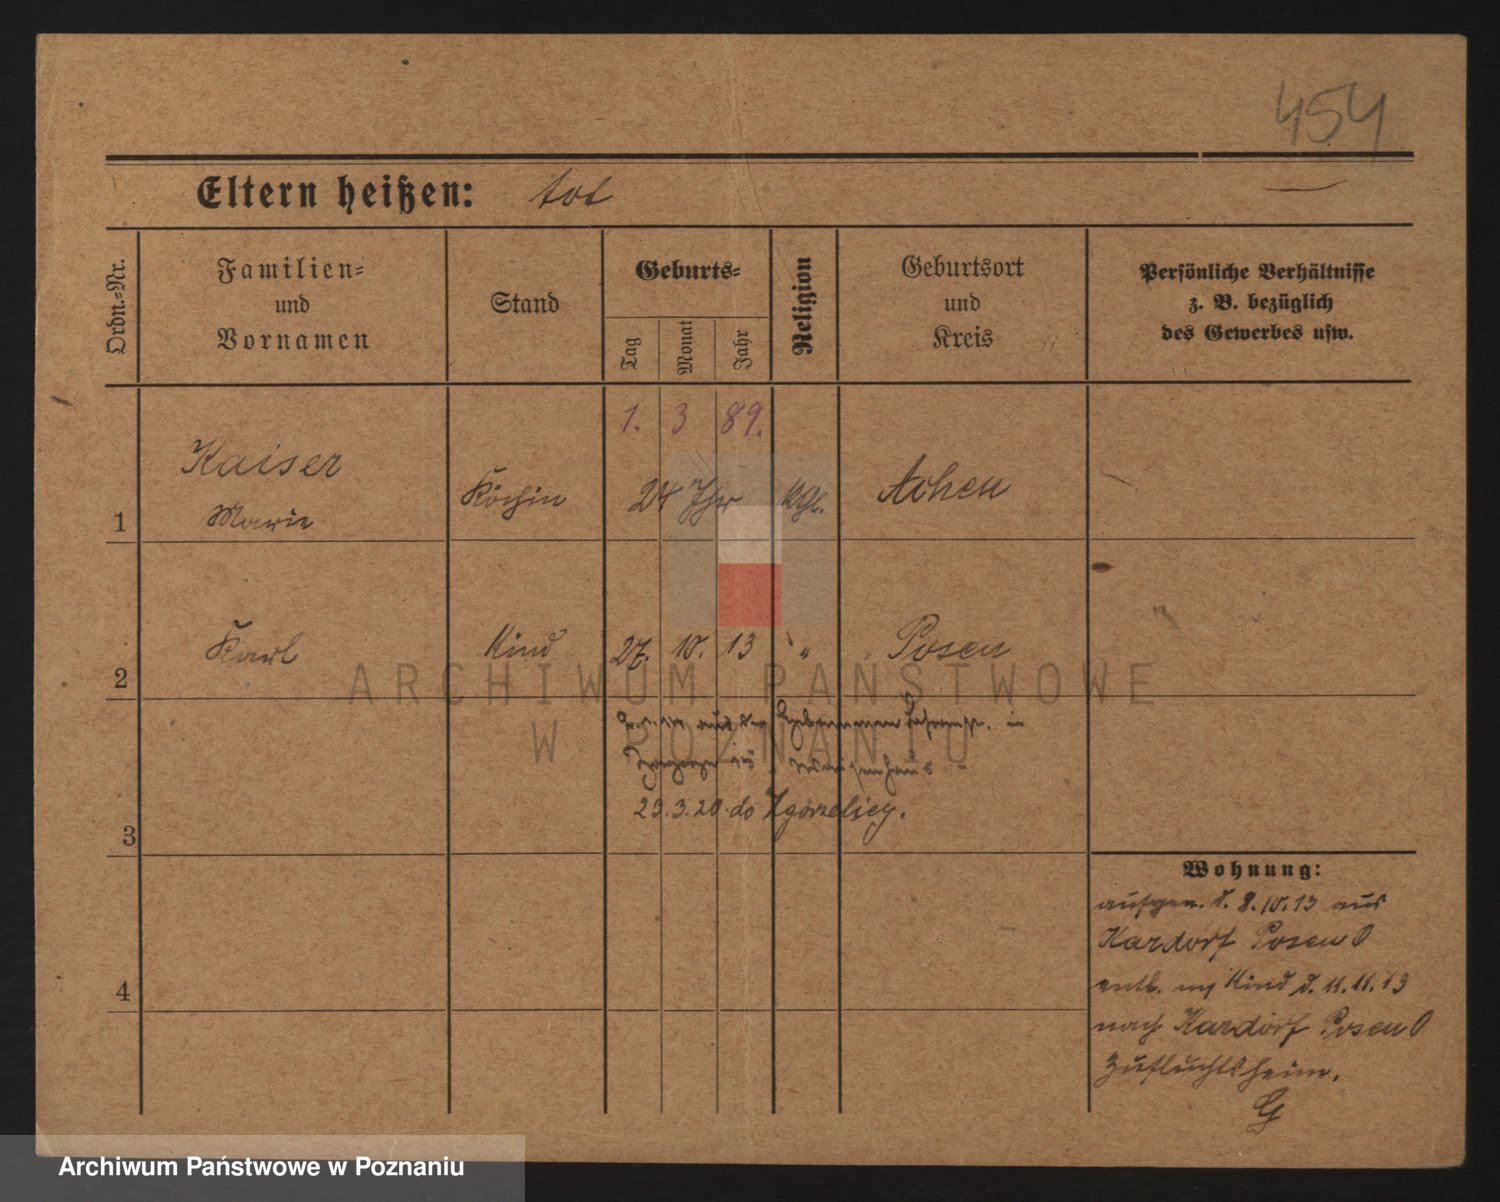 454
Eltern heißen: tot
Ordn.-Nr.
Familien-
und
Vornamen
Stand
Geburts-
Tag
Monat
Jahr
Religion
Geburtsort
und
Kreis
Persönliche Verhältnisse
z. B. bezüglich
des Gewerbes usw.
1. 3 89.
1 Kaiser
Marie
Köchin
24 Jhr
Achen
2 Karl
Kind
27. 10. 13
"
Posen
ARCHIWUM PAŃSTWOWE
W POZNANIU
aus der in
Waisenhaus
23.3.20 do
3
Wohnung:
aufgen. d. 8.10.13 aus
Kardorf Posen O
entl. m/ Kind d. 11.11.13
nach Kardorf Posen O
Zufluchtsheim.
G
4
Archiwum Państwowe w Poznaniu